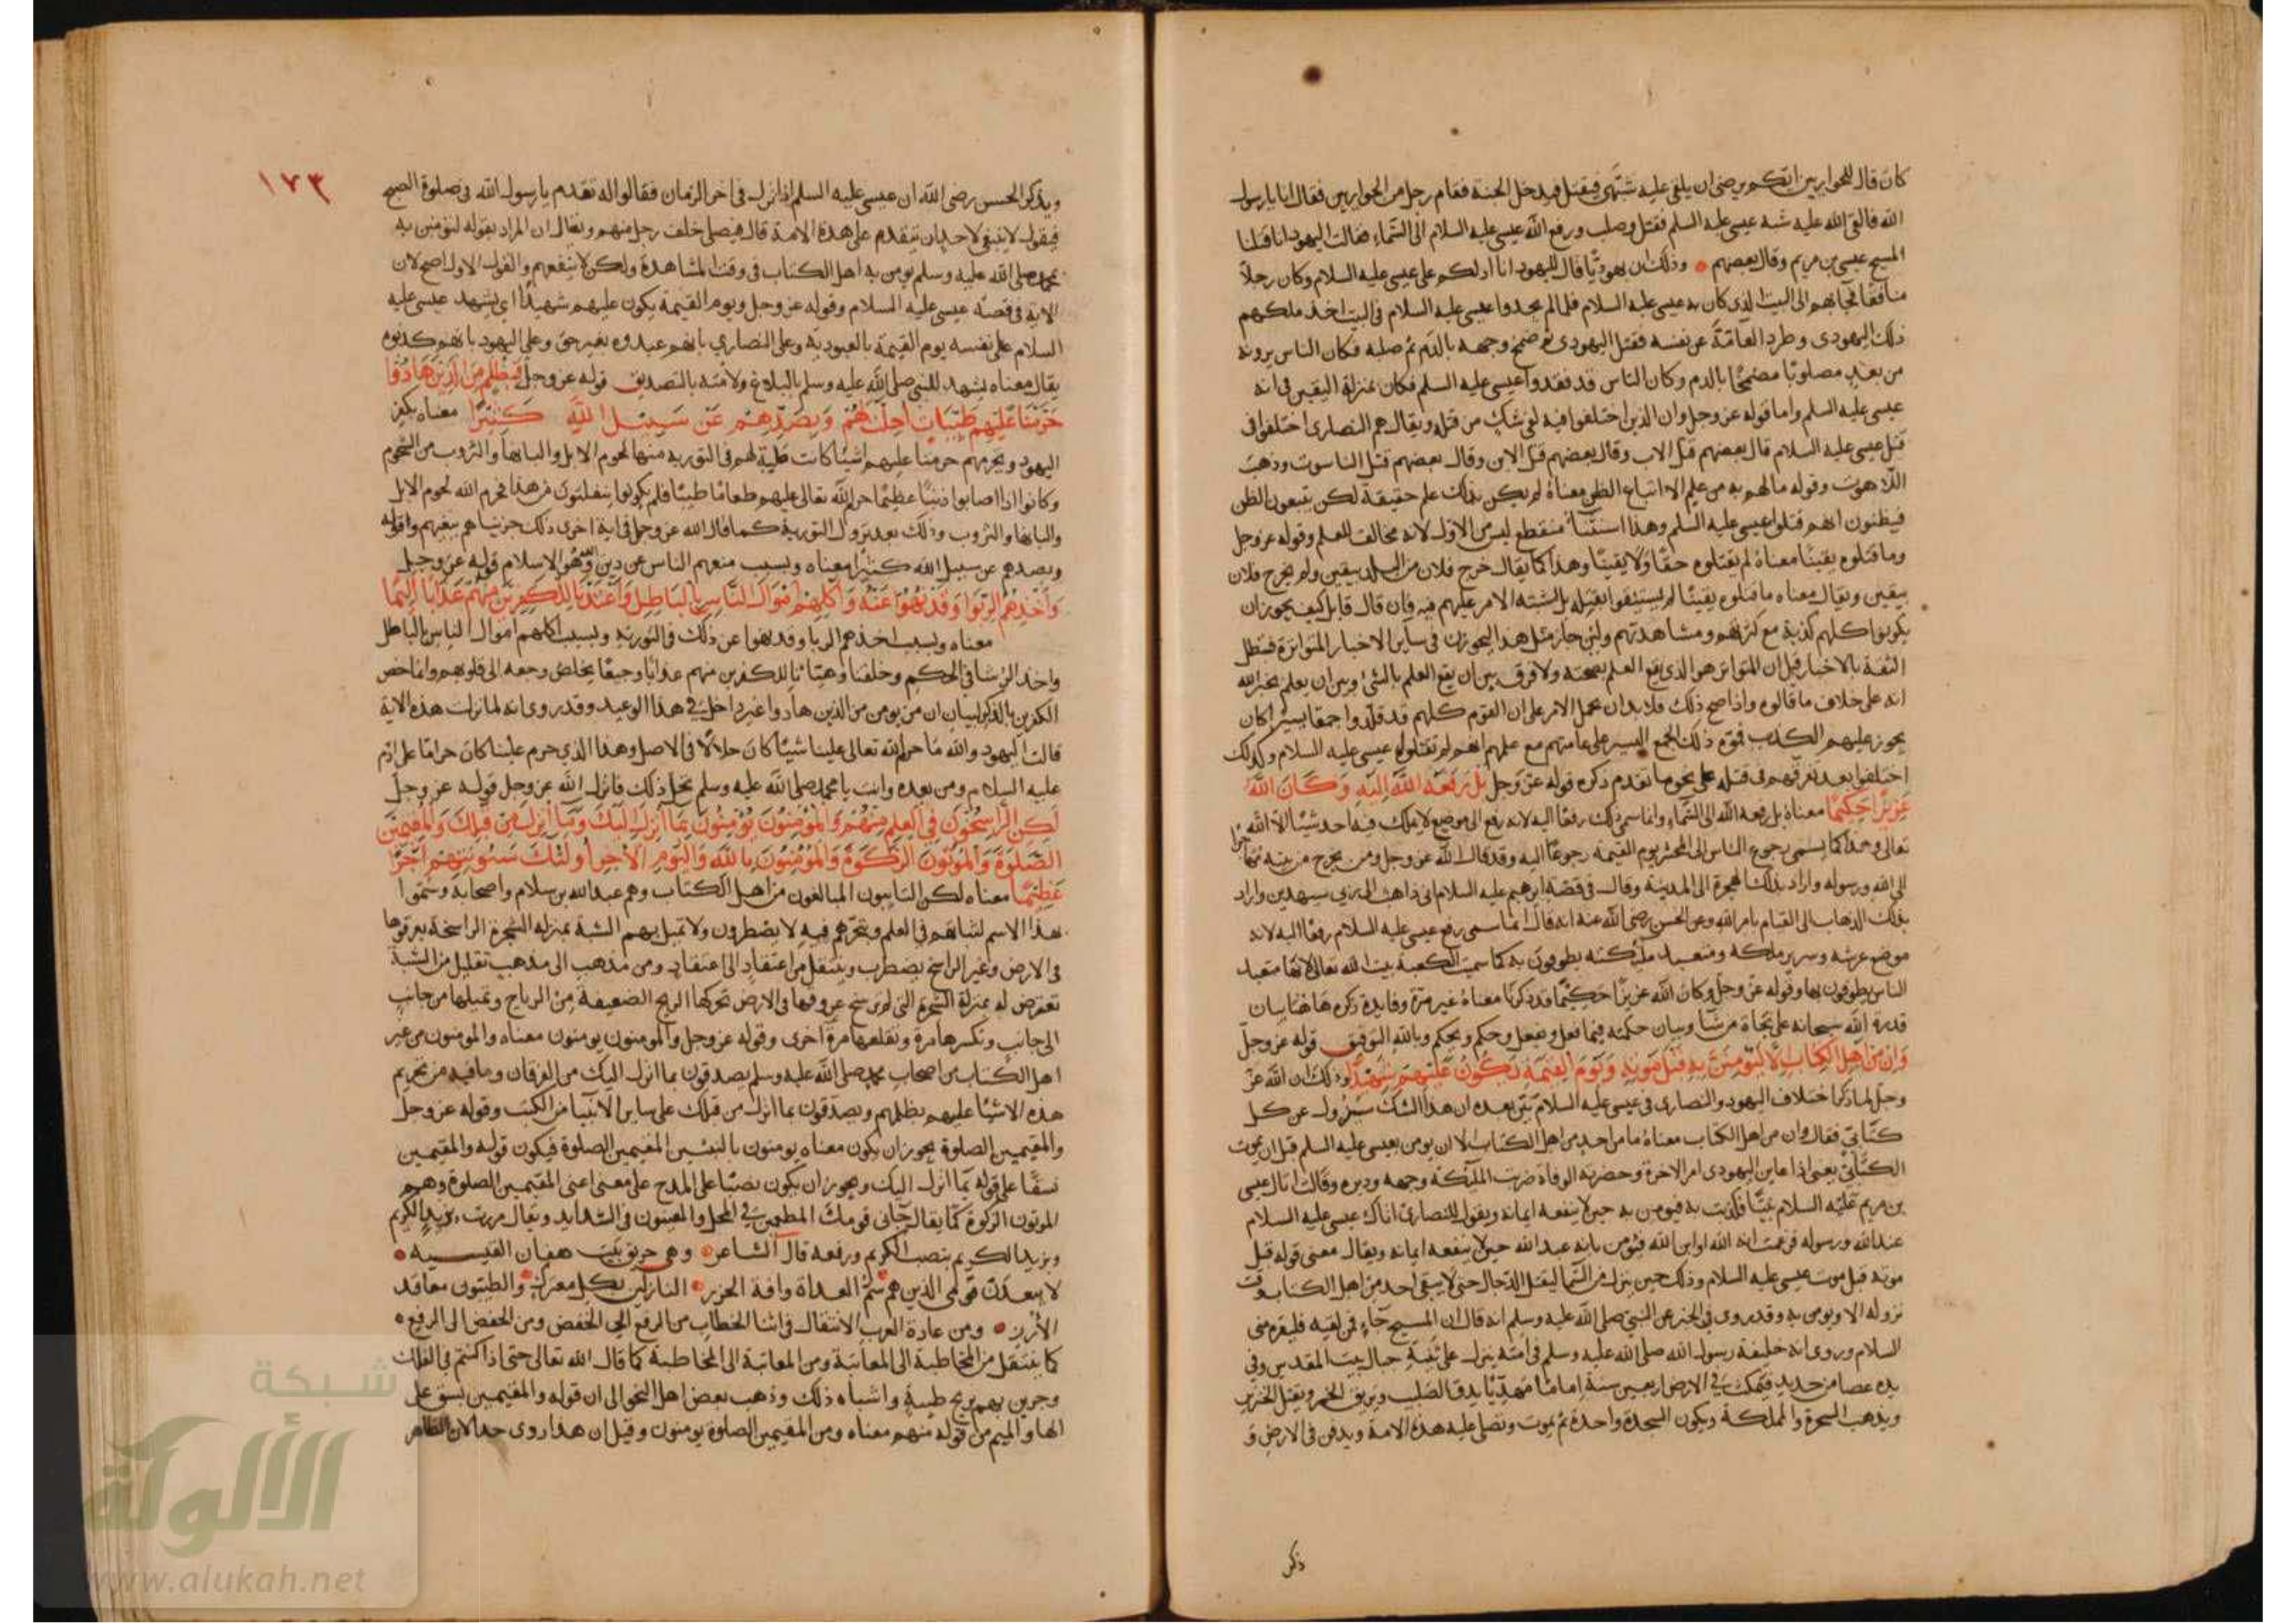 كان قال للحواريين ايكم يرضى ان يلقى عليه شبهى فيقتل فيدخل الجنة فقام رجل من الحواريين فقال انا يا رسول
الله فالقى الله عليه شبه عيسى عليه السلم فقتل وصلب ورفع الله عيسى عليه السلام الى السماء فقالت اليهود انا قتلنا
المسيح عيسى بن مريم وقال بعضهم وذلك ان يهوديًا قال لليهود انا ادلكم على عيسى عليه السلام وكان رجلاً
منافقًا فجآء بهم الى البيت الذى كان به عيسى عليه السلام فلما لم يجدوا عيسى عليه السلام فى البيت اخذ ملكهم
ذلك اليهودى وطرد العامّة عن نفسه فقتل اليهودى ثم ضمخ وجهه بالدم ثم صلبه فكان الناس يرونه
من بعد مصلوبًا مضمخًا بالدم وكان الناس قد فقدوا عيسى عليه السلم فكان بمنزلة اليقين فى انه
عيسى عليه السلم واما قوله عز وجل وان الذين اختلفوا فيه لفى شك من قتله ويقال هم النصارى اختلفوا فى
قتل عيسى عليه السلام قال بعضهم قتل الاب وقال بعضهم قتل الابن وقال بعضهم قتل الناسوت وذهب
اللاهوت وقوله ما لهم به من علم الا اتباع الظن معناه لم يكن بذلك علم حقيقة لكن يتبعون الظن
فيظنون انهم قتلوا عيسى عليه السلم وهذا استثنآء منقطع ليس من الاول لانه مخالف للعلم وقوله عز وجل
وما قتلوه يقينًا معناه لم يقتلوه حقًا ولا يقينًا وهذا كما يقال خرج فلان من البلد بيقين ولم يخرج فلان
بيقين ويقال معناه ما قتلوه يقينًا لم يستيقنوا بقتله بل اشتبه الامر عليهم فيه فان قال قايل كيف يجوز ان
يكونوا كلهم كذبة مع كثرتهم ومشاهدتهم ولئن جاز مثل هذا ليجوزن فى ساير الاخبار المتواترة فتبطل
الثقة بالاخبار قيل ان المتواتر هو الذى يقع العلم بصحته ولا فرق بين ان يقع العلم بالشئ وبين ان يعلم بخبر الله
انه على خلاف ما قالوه واذا صح ذلك فلا بد ان يحمل الامر على ان القوم كلهم قد قلدوا جمعًا يسيرًا كان
يجوز عليهم الكذب فموّه ذلك الجمع اليسير على عامتهم مع علمهم انهم لم يقتلوا عيسى عليه السلام وكذلك
اختلفوا بعد تفرقهم فى قتله على نحو ما تقدم ذكره قوله عز وجل بل رفعه الله اليه وكان الله
عزيزًا حكيمًا معناه بل رفعه الله الى السماء وانما سمى ذلك رفعًا اليه لانه رفع الى موضع لا يملك فيه احد شيئًا الا الله
تعالى وهذا كما يسمى رجوع الناس الى المحشر يوم القيمة رجوعًا اليه وقد قال الله عز وجل ومن يخرج من بيته مهاجرًا
الى الله ورسوله واراد بذلك الهجرة الى المدينة وقال فى قصة ابرهيم عليه السلام انى ذاهب الى ربى سيهدين واراد
بذلك الذهاب الى القيام بامر الله وعن الحسن رضى الله عنه انه قال انما سمى رفع عيسى عليه السلام رفعًا اليه لانه
موضع عرشه وسرير ملكه ومتعبد مليكته يطوفون به كما سميت الكعبة بيت الله تعالى لانها متعبد
الناس يطوفون بها وقوله عز وجل وكان الله عزيزًا حكيمًا قد ذكرنا معناه غير مرة وفايدة ذكره هاهنا بيان
قدرة الله سبحانه على نجاة من شآء وبيان حكمته فيما فعل ويفعل وحكم ويحكم وبالله التوفيق قوله عز وجل
وان من اهل الكتاب الا ليؤمنن به قبل موته ويوم القيمة يكون عليهم شهيدًا وذلك ان الله عز
وجل لما ذكر اختلاف اليهود والنصارى فى عيسى عليه السلام بيّن بعده ان هذا الشك سيزول عن كل
كتابى فقال وان من اهل الكتاب معناه ما من احد من اهل الكتاب الا ان يومن بعيسى عليه السلم قبل ان يموت
الكتابى يعنى اذا عاين اليهودى امر الاخرة وحضرته الوفاة ضربت المليكة وجهه ودبره وقالت اتاك عيسى
بن مريم عليه السلام نبيًا فكذبت به فيومن به حين لا ينفعه ايمانه ويقول للنصارى اتاك عيسى عليه السلام
عبد الله ورسوله فزعمت انه الله او ابن الله فيؤمن بانه عبد الله حين لا ينفعه ايمانه ويقال معنى قوله قبل
موته قبل موت عيسى عليه السلام وذلك حين ينزل من السما ليقتل الدجال حتى لا يبقى احد من اهل الكتاب وقت
نزوله الا ويومن به وقد روى فى الخبر عن النبى صلى الله عليه وسلم انه قال ان المسيح جاء فمن لقيه فليقره منى
السلام وروى انه خليفة رسول الله صلى الله عليه وسلم فى امته ينزل على ثنية جبال بيت المقدس وفى
يده عصا من حديد فيمكث فى الارض اربعين سنة اماما مهديًا يدق الصليب ويريق الخمر ويقتل الخنزير
ويذهب السحرة والمملكة ويكون السجدة واحدة ثم يموت ويصلى عليه هذه الامة ويدفن فى الارض و
ذكر
١٧٣
ويذكر الحسن رضى الله ان عيسى عليه السلم اذا نزل فى اخر الزمان فقالوا له تقدم يا رسول الله فى صلوة الصبح
فيقول لا ينبغى لاحد ان يتقدم على هذه الامة قال فيصلى خلف رجل منهم ويقال ان المراد بقوله ليؤمنن به
بمحمد صلى الله عليه وسلم يومن به اهل الكتاب فى وقت المشاهدة ولكن لا ينفعهم والقول الاول اصح لان
الاية فى قصة عيسى عليه السلام وقوله عز وجل ويوم القيمة يكون عليهم شهيدًا اى يشهد عيسى عليه
السلام على نفسه يوم القيمة بالعبودية وعلى النصارى بانهم عبدوه بغير حق وعلى اليهود بانهم كذبوه
يقال معناه يشهد للنبى صلى الله عليه وسلم بالبلاغ ولامته بالتصديق قوله عز وجل فبظلم من الذين هادوا
حرمنا عليهم طيبات احلت لهم وبصدهم عن سبيل الله كثيرًا معناه بكفر
اليهود وبجرمهم حرمنا عليهم اشيآ كانت طيبة لهم فى التورية منها لحوم الابل والبانها والثروب من الشحوم
وكانوا اذا اصابوا ذنبًا عظيمًا حرم الله تعالى عليهم طعامًا طيبًا فلم يكونوا ينفلتون من هذا فحرم الله لحوم الابل
والبانها والثروب وذلك بعد نزول التورية كما قال الله عز وجل فى اية اخرى ذلك جزيناهم ببغيهم وقوله
وبصدهم عن سبيل الله كثيرًا معناه وبسبب منعهم الناس عن دين الله وهو الاسلام قوله عز وجل
واخذهم الربوا وقد نهوا عنه واكلهم اموال الناس بالباطل واعتدنا للكفرين منهم عذابًا اليمًا
معناه وبسبب اخذهم الربا وقد نهوا عن ذلك فى التورية وبسبب اكلهم اموال الناس بالباطل
واخذ الرشا فى الحكم وخلقنا وهيّأنا للكفرين منهم عذابًا وجيعًا يخلص وجعه الى قلوبهم وانما خص
الكفرين بالذكر لبيان ان من يومن من الذين هادوا غير داخل فى هذا الوعيد وقد روى انه لما نزلت هذه الاية
قالت اليهود والله ما حرم الله تعالى علينا شيئًا كان حلالاً فى الاصل وهذا الذى حرم علينا كان حرامًا على ادم
عليه السلام ومن بعده وانت يا محمد صلى الله عليه وسلم تحل ذلك فانزل الله عز وجل قوله عز وجل
لكن الراسخون فى العلم منهم والمؤمنون يؤمنون بما انزل اليك وما انزل من قبلك والمقيمين
الصلوة والمؤتون الزكوة والمؤمنون بالله واليوم الاخر اولئك سنؤتيهم اجرًا
عظيمًا معناه لكن التايبون المبالغون من اهل الكتاب وهم عبد الله بن سلام واصحابه وسُمّوا
بهذا الاسم لثباتهم فى العلم وتبحرهم فيه لا يضطربون ولا تميل بهم الشبهة بمنزلة الشجرة الراسخة بعروقها
فى الارض وغير الراسخ يضطرب وينتقل من اعتقاد الى اعتقاد ومن مذهب الى مذهب بقليل من الشبهة
تعترض له بمنزلة الشجرة التى لم يرسخ عروقها فى الارض تحركها الريح الضعيفة من الرياح وتميلها من جانب
الى جانب وتكسرها مرة وتقلعها مرة اخرى وقوله عز وجل والمومنون يومنون معناه والمومنون من غير
اهل الكتاب من اصحاب محمد صلى الله عليه وسلم يصدقون بما انزل اليك من الفرقان وما فيه من تحريم
هذه الاشيآ عليهم بظلمهم ويصدقون بما انزل من قبلك على ساير الانبيآ من الكتب وقوله عز وجل
والمقيمين الصلوة يجوز ان يكون معناه يومنون بالنبيين المقيمين الصلوة فيكون قوله والمقيمين
نسقًا على قوله بما انزل اليك ويجوز ان يكون نصبًا على المدح على معنى اعنى المقيمين الصلوة وهم
الموتون الزكوة كما يقال جآنى قومك المطعمين فى المحل والمعينون فى الشدايد ويقال مررت بزيد الكريم
وبزيد الكريم بنصب الكريم ورفعه قال الشاعر وهى خرنق بنت هفان القيسيه
لا يبعدن قومى الذين هم سم العداة وافة الجزر النازلين بكل معترك والطيبون معاقد
الأزر ومن عادة العرب الانتقال فى اثنا الخطاب من الرفع الى الخفض ومن الخفض الى الرفع
كما ينتقل من المخاطبة الى المغايبة ومن المغايبة الى المخاطبة كما قال الله تعالى حتى اذا كنتم فى الفلك
وجرين بهم بريح طيبة واشباه ذلك وذهب بعض اهل النحو الى ان قوله والمقيمين نسق على
الها والميم من قوله منهم معناه ومن المقيمين الصلوة يومنون وقيل ان هذا روى
شبكة
الألوكة
www.alukah.net